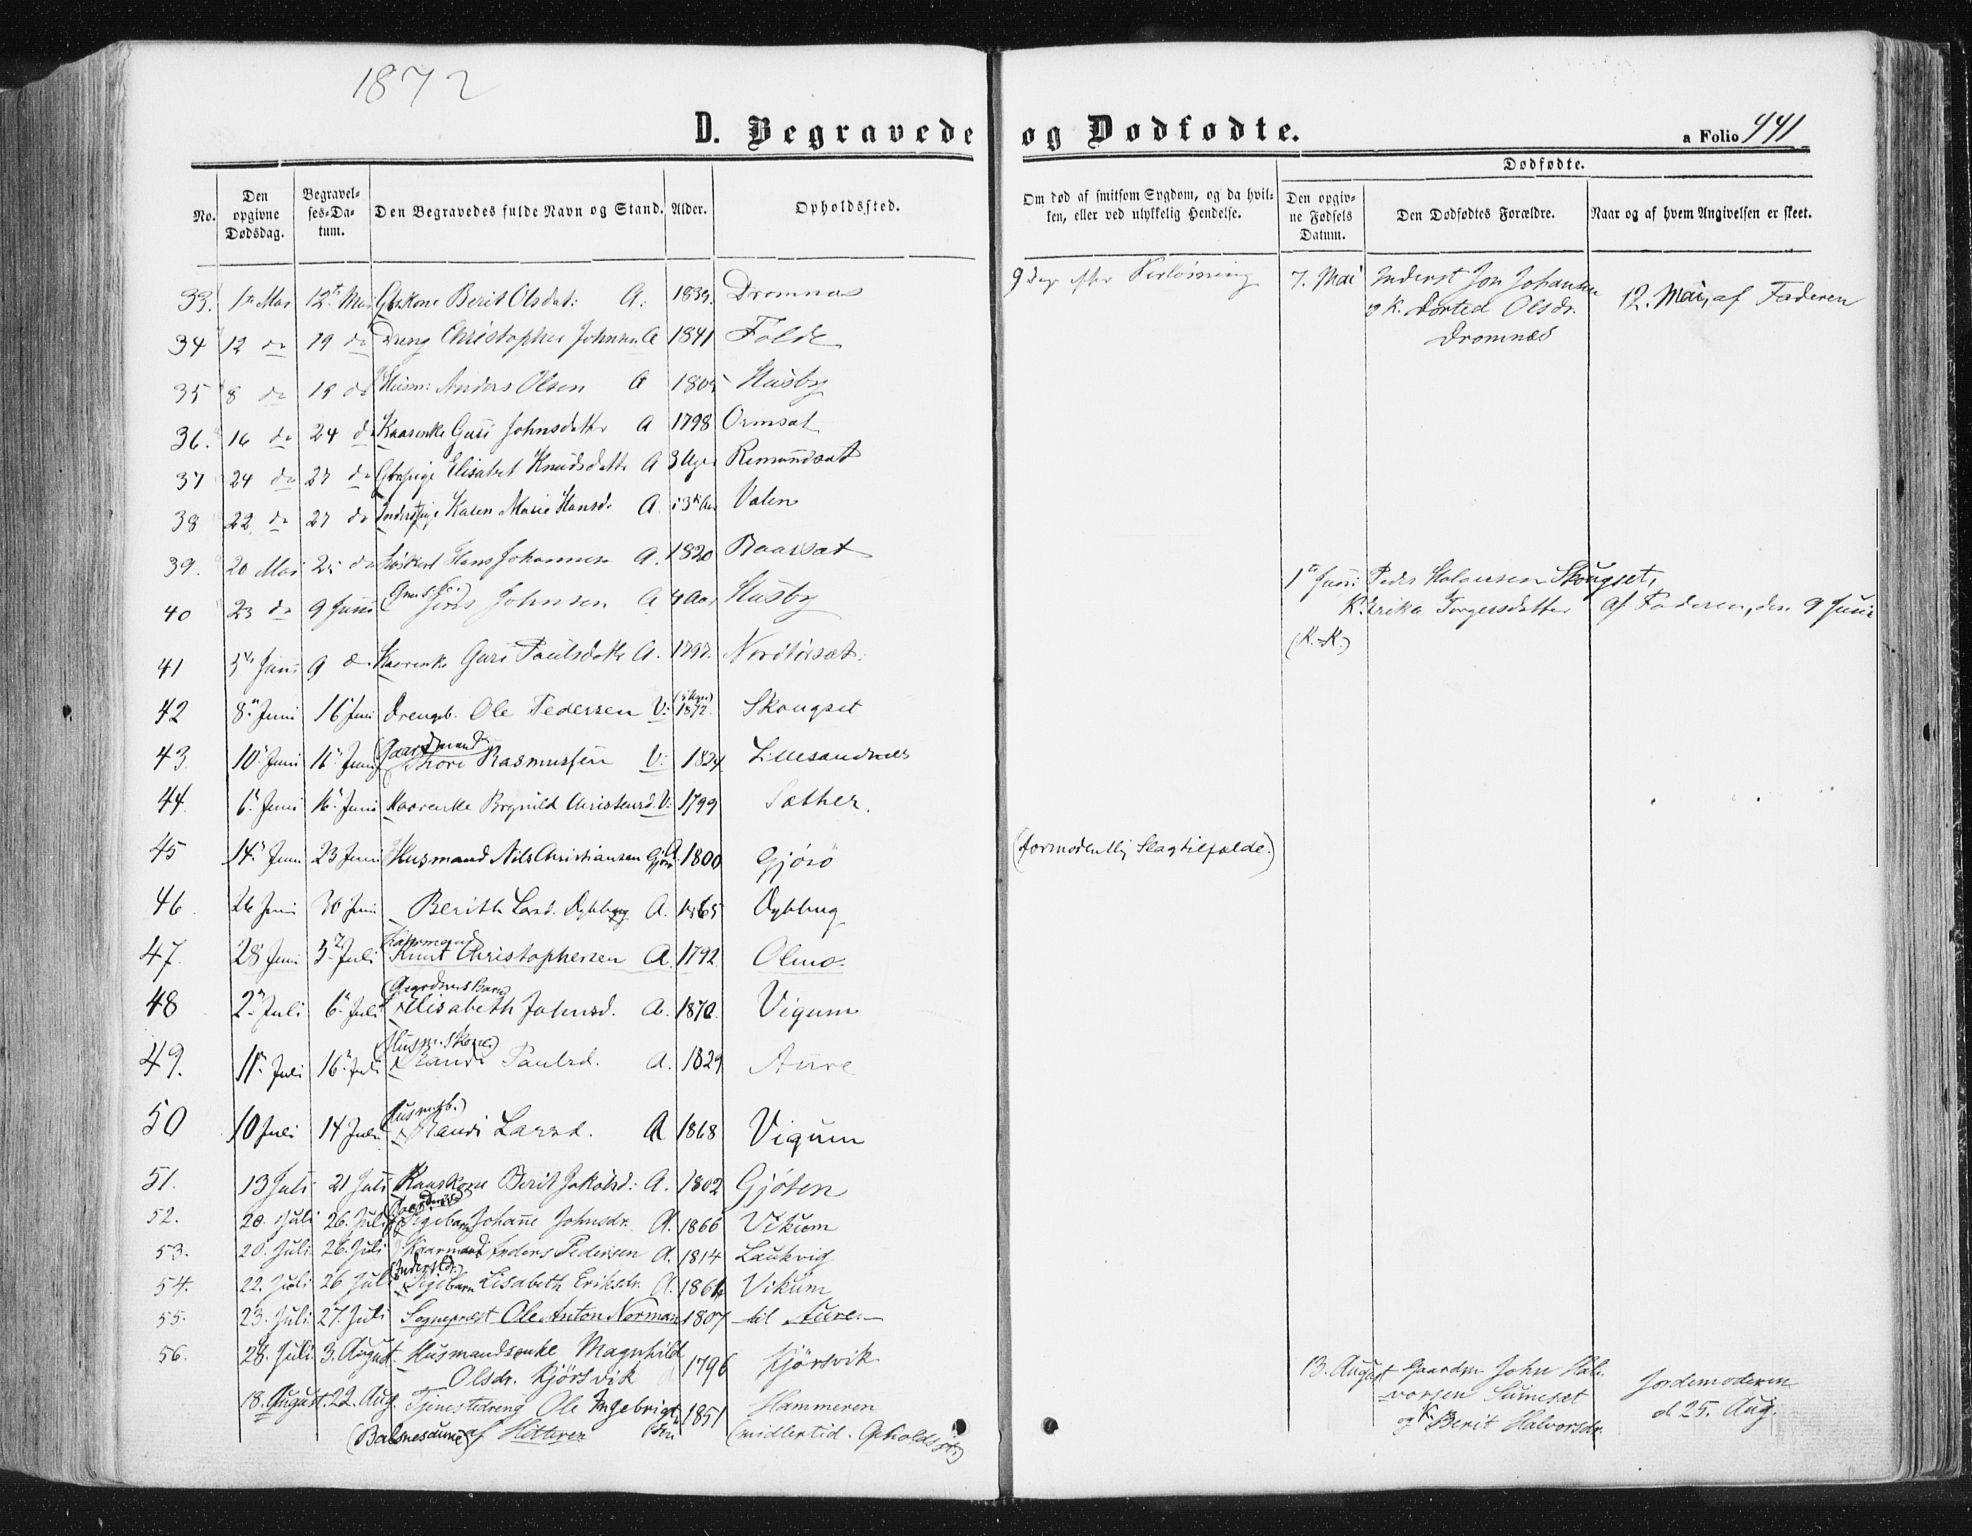 1872
D. Begravede og Dødfødte.
a Folio 441
No.
Den opgivne Dødsdag.
Begravelses-Datum.
Den Begravedes fulde Navn og Stand.
Alder.
Opholdssted.
Om død af smitsom Sygdom, og da hvilken, eller ved ulykkelig Hendelse.
Dødfødte.
Den opgivne Fødsels Datum.
Den Dødfødtes Forældre.
Naar og af hvem Angivelsen er skeet.
33. 12t Mai Berit Olsdat: A. 1839. Dromnæs
9 Dage efter Forløsning
7. Mai Inderst Jon Johansen
og K. Dorted Olsdr.
Dromnæs
12. Mai, af Faderen
34 12 do 19 do Dreng Christopher Johnsen A 1841 Folde
35 8 do 19 do Husm: Anders Olsen A 1805 Husby
36. 16 do 24 do Kaarenke Guri Johnsdatter A 1798 Ormsæt
37 24 do 27 do Elisabet Knudsdatter A 3 Uger Remundsæt
38 22 do 27 do Karen Marie Hansd. A. Valen
39. 20 Mai 25 do Hans Johannesen A. 1820 Baarsæt
40 23 do 9 Juni Jens Johnsen A 4 Aar Husby
1ste Juni: Peder Halvorsen Skougset,
K. Erika Torgersdatter
(K.-K.)
af Faderen, den 9 Juni
41 5te Juni 9 do Kaarenke Guri Paulsdatter A. 1797. Nordtørsæt.
42 8de Juni 16 Juni Drengb. Ole Pedersen V: 1872. Skougset
43. 10de Juni 16 Juni (Gaardmand) Thore Rasmussen V: 1824 Lillesandnes
44. 6te Juni 16 Juni Kaarenke Brynild Christensd. V: 1799 Sæther.
45 14de Juni 23 Juni Husmand Nils Christiansen Gjøsø A. 1800 Gjøsø
(formodentlig Slagtilfælde.)
46. 26 Juni 30 Juni Berith Larsd. Dybbug A. 1865 Dybbug
47. 28 Juni 5 Juli Kaarmand Knut Christophersen A. 1792 Olmo.
48 2den Juli 6te Juli (Gaardmds Barn) Elisabeth Johnsd. A. 1870. Vigum
49. 11te Juli 16de Juli (Husm. Kone) Randi Paulsd. A. 1829 Aure
50 10 Juli 14 Juli Husmdsb. Randi Larsd. A 1868 Vigum
51. 13 Juli 21 Juli Kaarkone Berit Jakobsd: A. 1802 Gjøten
52. 20. Juli 26. Juli Pigebarn Johanne Johnsdr. A. 1866 Vikum
53. 20. Juli 26. Juli Kaarmand Anders Pedersen A. 1814 Laukvig
54. 22. Juli 26 Juli Pigebarn Lisabeth Eriksdr. A. 1864 Vikum
55. 23. Juli 27. Juli Sogneprest Ole Anton Norman 1807 til Aure.
56. 28. Juli 3. August. Husmandsenke Magnhild Olsdr. Kjørsvik 1796 Kjørsvik
18. August. 22. Aug. Tjenestedreng Ole Ingebrigtsen 1851 Hammeren
af Hitteren (midlertid. Opholdssted)
13. August Gaardm. John Halvorsen Sumesæt
og K. Berit Halvorsdr.
Jordemoderen
d. 25. Aug.